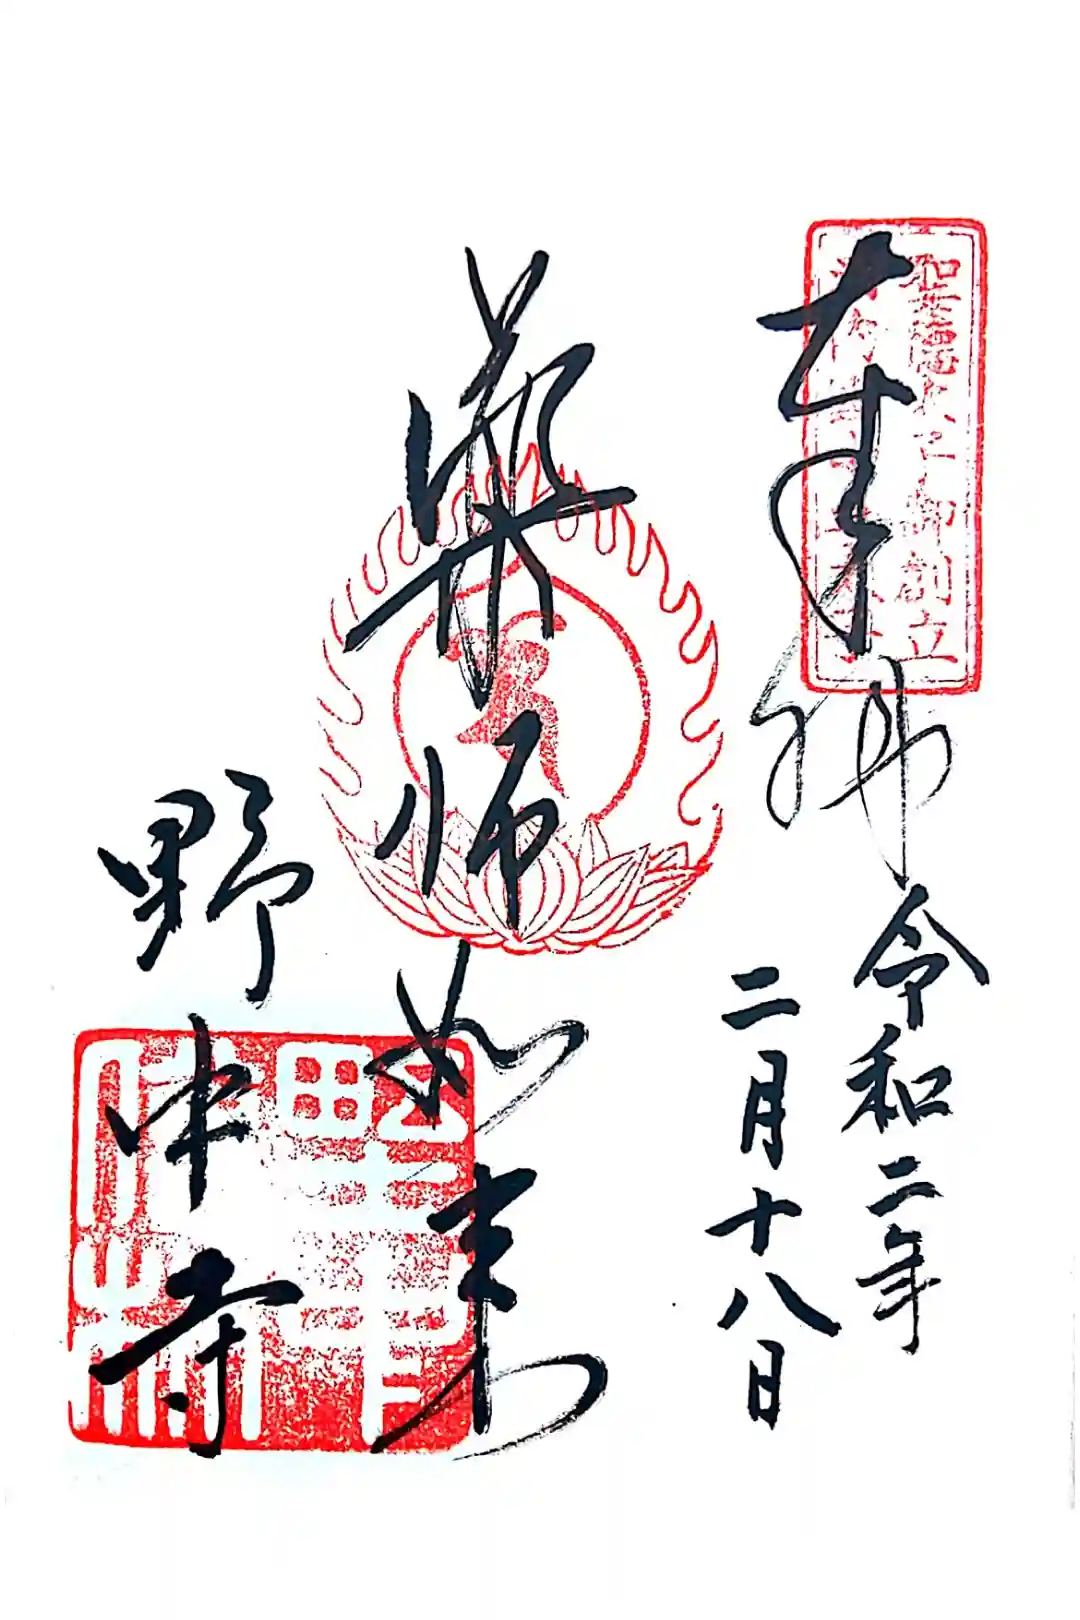 奉拝
聖徳太子御創立
令和二年
二月十八日
薬師如来
野中寺